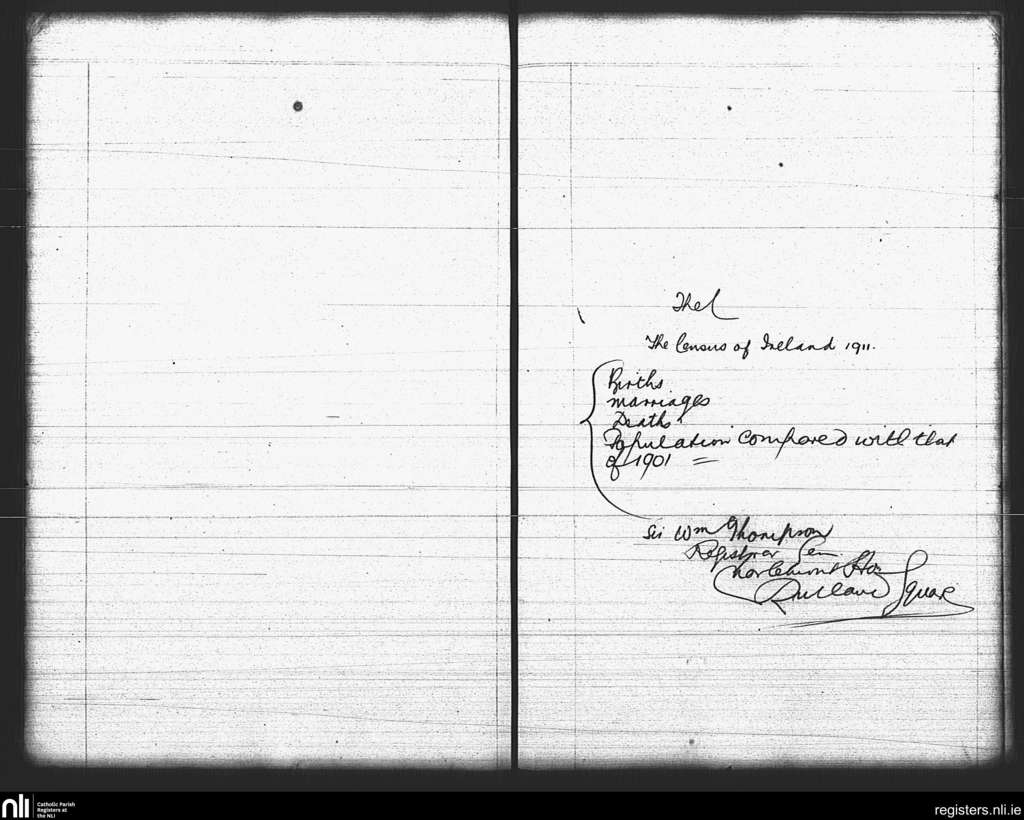 The
The Census of Ireland 1911.
Births
Marriages
Deaths
Population compared with that
of 1901 =
Sir Wm Thompson
Registrar Gen.
Charlemont Ho
Rutland Square
nli
Catholic Parish
Registers at
the NLI
registers.nli.ie